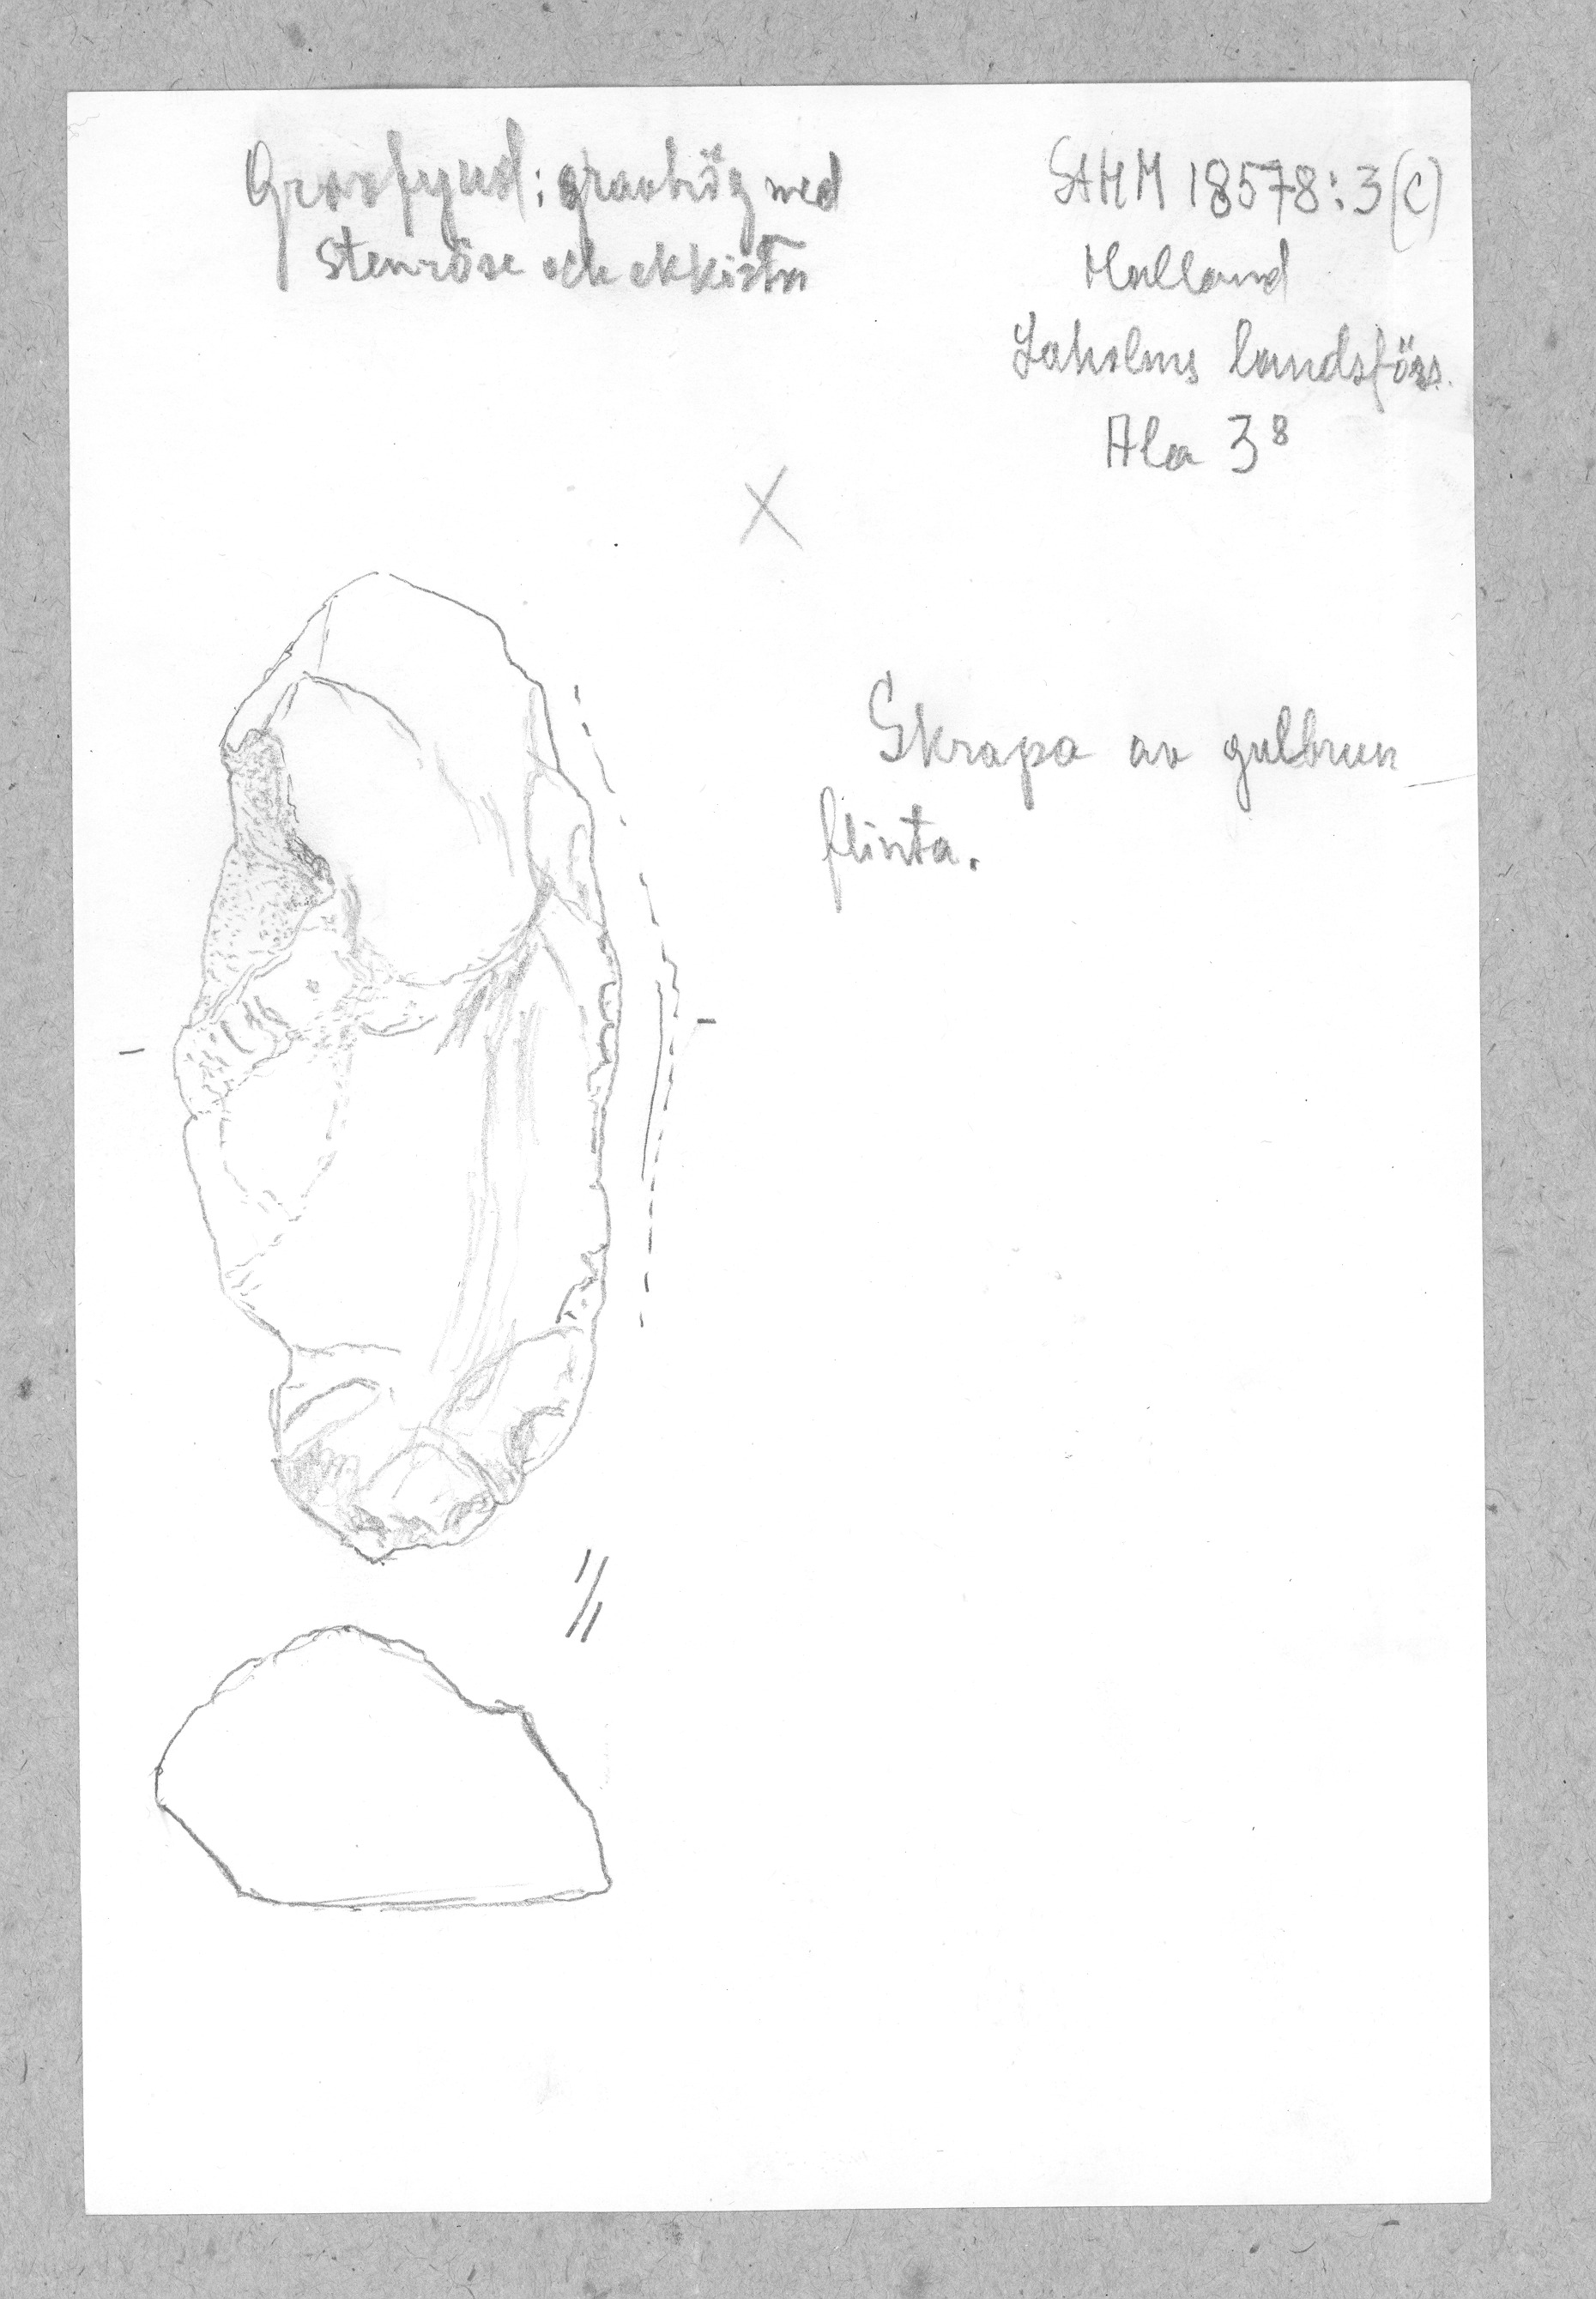 Gravfynd: gravhög med
stenröse och ekkista
SHM 18578:3(c)
Halland
Laholms landsförs.
Ala 3⁸
X
Skrapa av gulbrun
flinta.
1/1